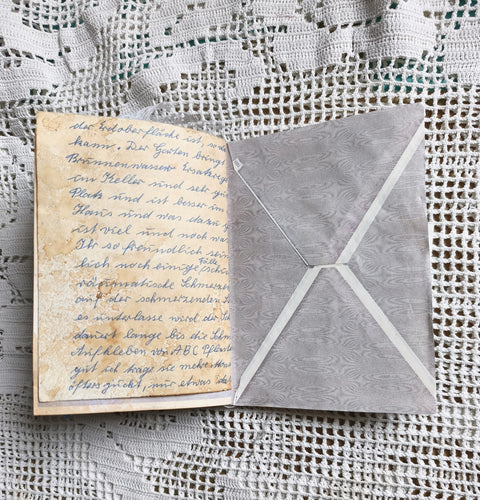 der Erdoberfläche ist, so da
kann. Der Garten bringt
Brunnenwasser
im Keller und sehr gu
Platz und ist besser im
Haus und was dazu
ist viel und noch was
Ihr so freundlich sein
lich noch einige
Fälle
rheumatische Schmerze
auf der schmerzenden S
es unterlasse wird der Sch
dauert lange bis die Schm
Aufkleben von ABC Pflaster
gut ich trage sie mehrere
öfters guckt, nur etwas da